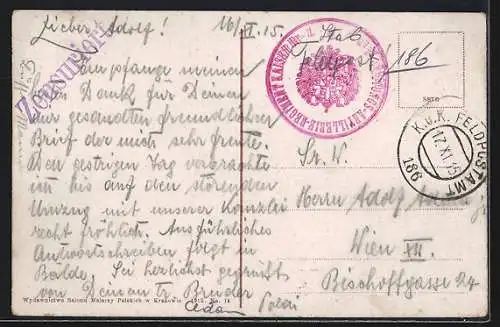 Lieber Adolf!
16/XI.15
Empfange meinen
Dank für Deinen
mir gesandten freundlichen
Brief der mich sehr freute.
Den gestrigen Tag verbrachte
ich bis auf den störenden
Umzug mit unserer Kanzlei
recht fröhlich. Ausführliches
Antwortschreiben folgt in
Bälde. Sei herzlichst gegrüßt
von Deinem tr. Bruder
Zensuriert
Stab
Feldpost! 186
K.u.K. FELDPOSTAMT
17.XI.15
186
Herrn Adolf
Wien XII.
Bischoffgasse 24
Wydawnictwo Salonu Malarzy Polskich w Krakowie.